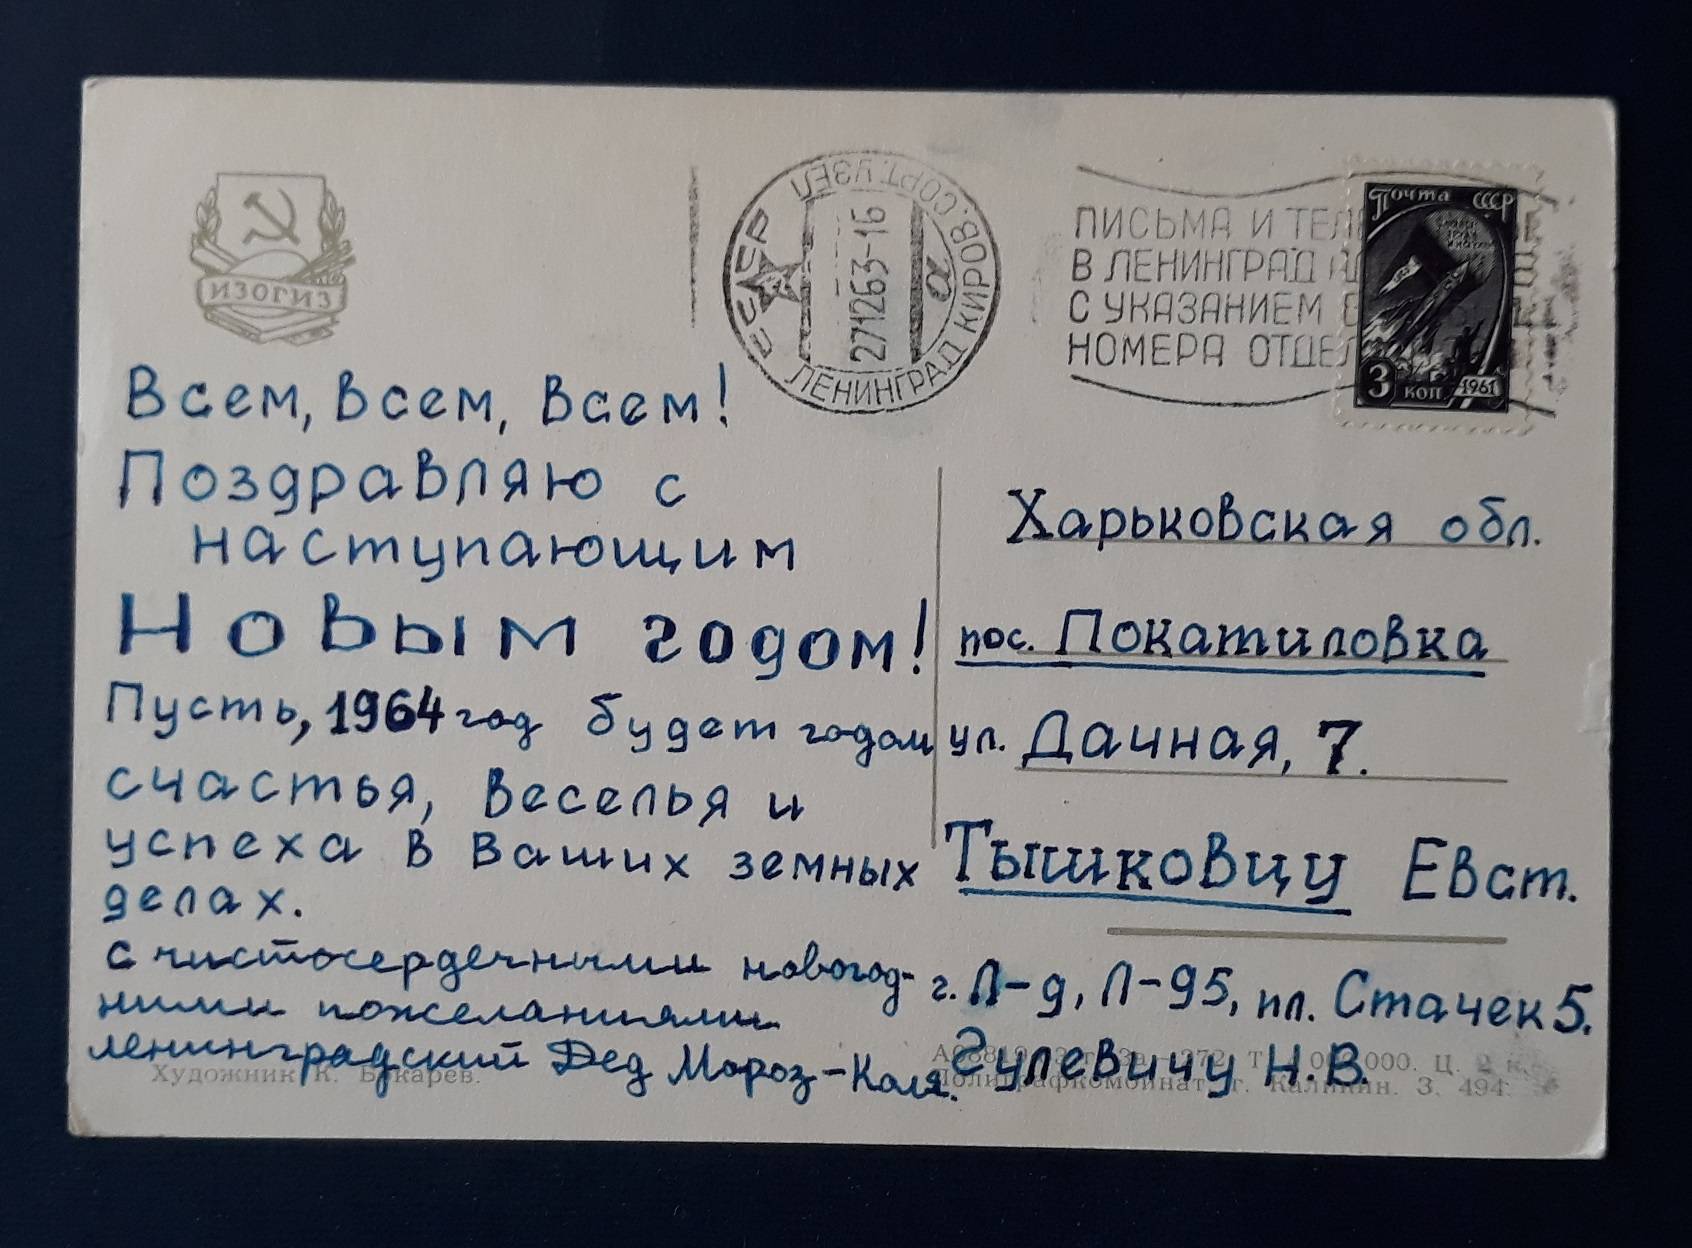 ИЗОГИЗ
СССР
ЛЕНИНГРАД КИРОВ. СОРТ. УЗЕЛ
271263-16
а
ПИСЬМА И
В ЛЕНИНГРАД
С УКАЗАНИЕМ
НОМЕРА
Почта СССР
3 КОП 1961
Всем, Всем, Всем!
Поздравляю с
наступающим
Новым годом!
Пусть, 1964 год будет годом
счастья, веселья и
успеха в Ваших земных
делах.
С чистосердечными новогод-
ними пожеланиями
ленинградский Дед Мороз-Коля.
Художник К. Бокарев.
Харьковская обл.
пос. Покатиловка
ул. Дачная, 7.
Тышковцу Евст.
г. Л-д, Л-95, пл. Стачек 5.
Гулевичу Н.В.
000. Ц. 2 к.
Полиграфкомбинат, г. Калинин. З. 494.